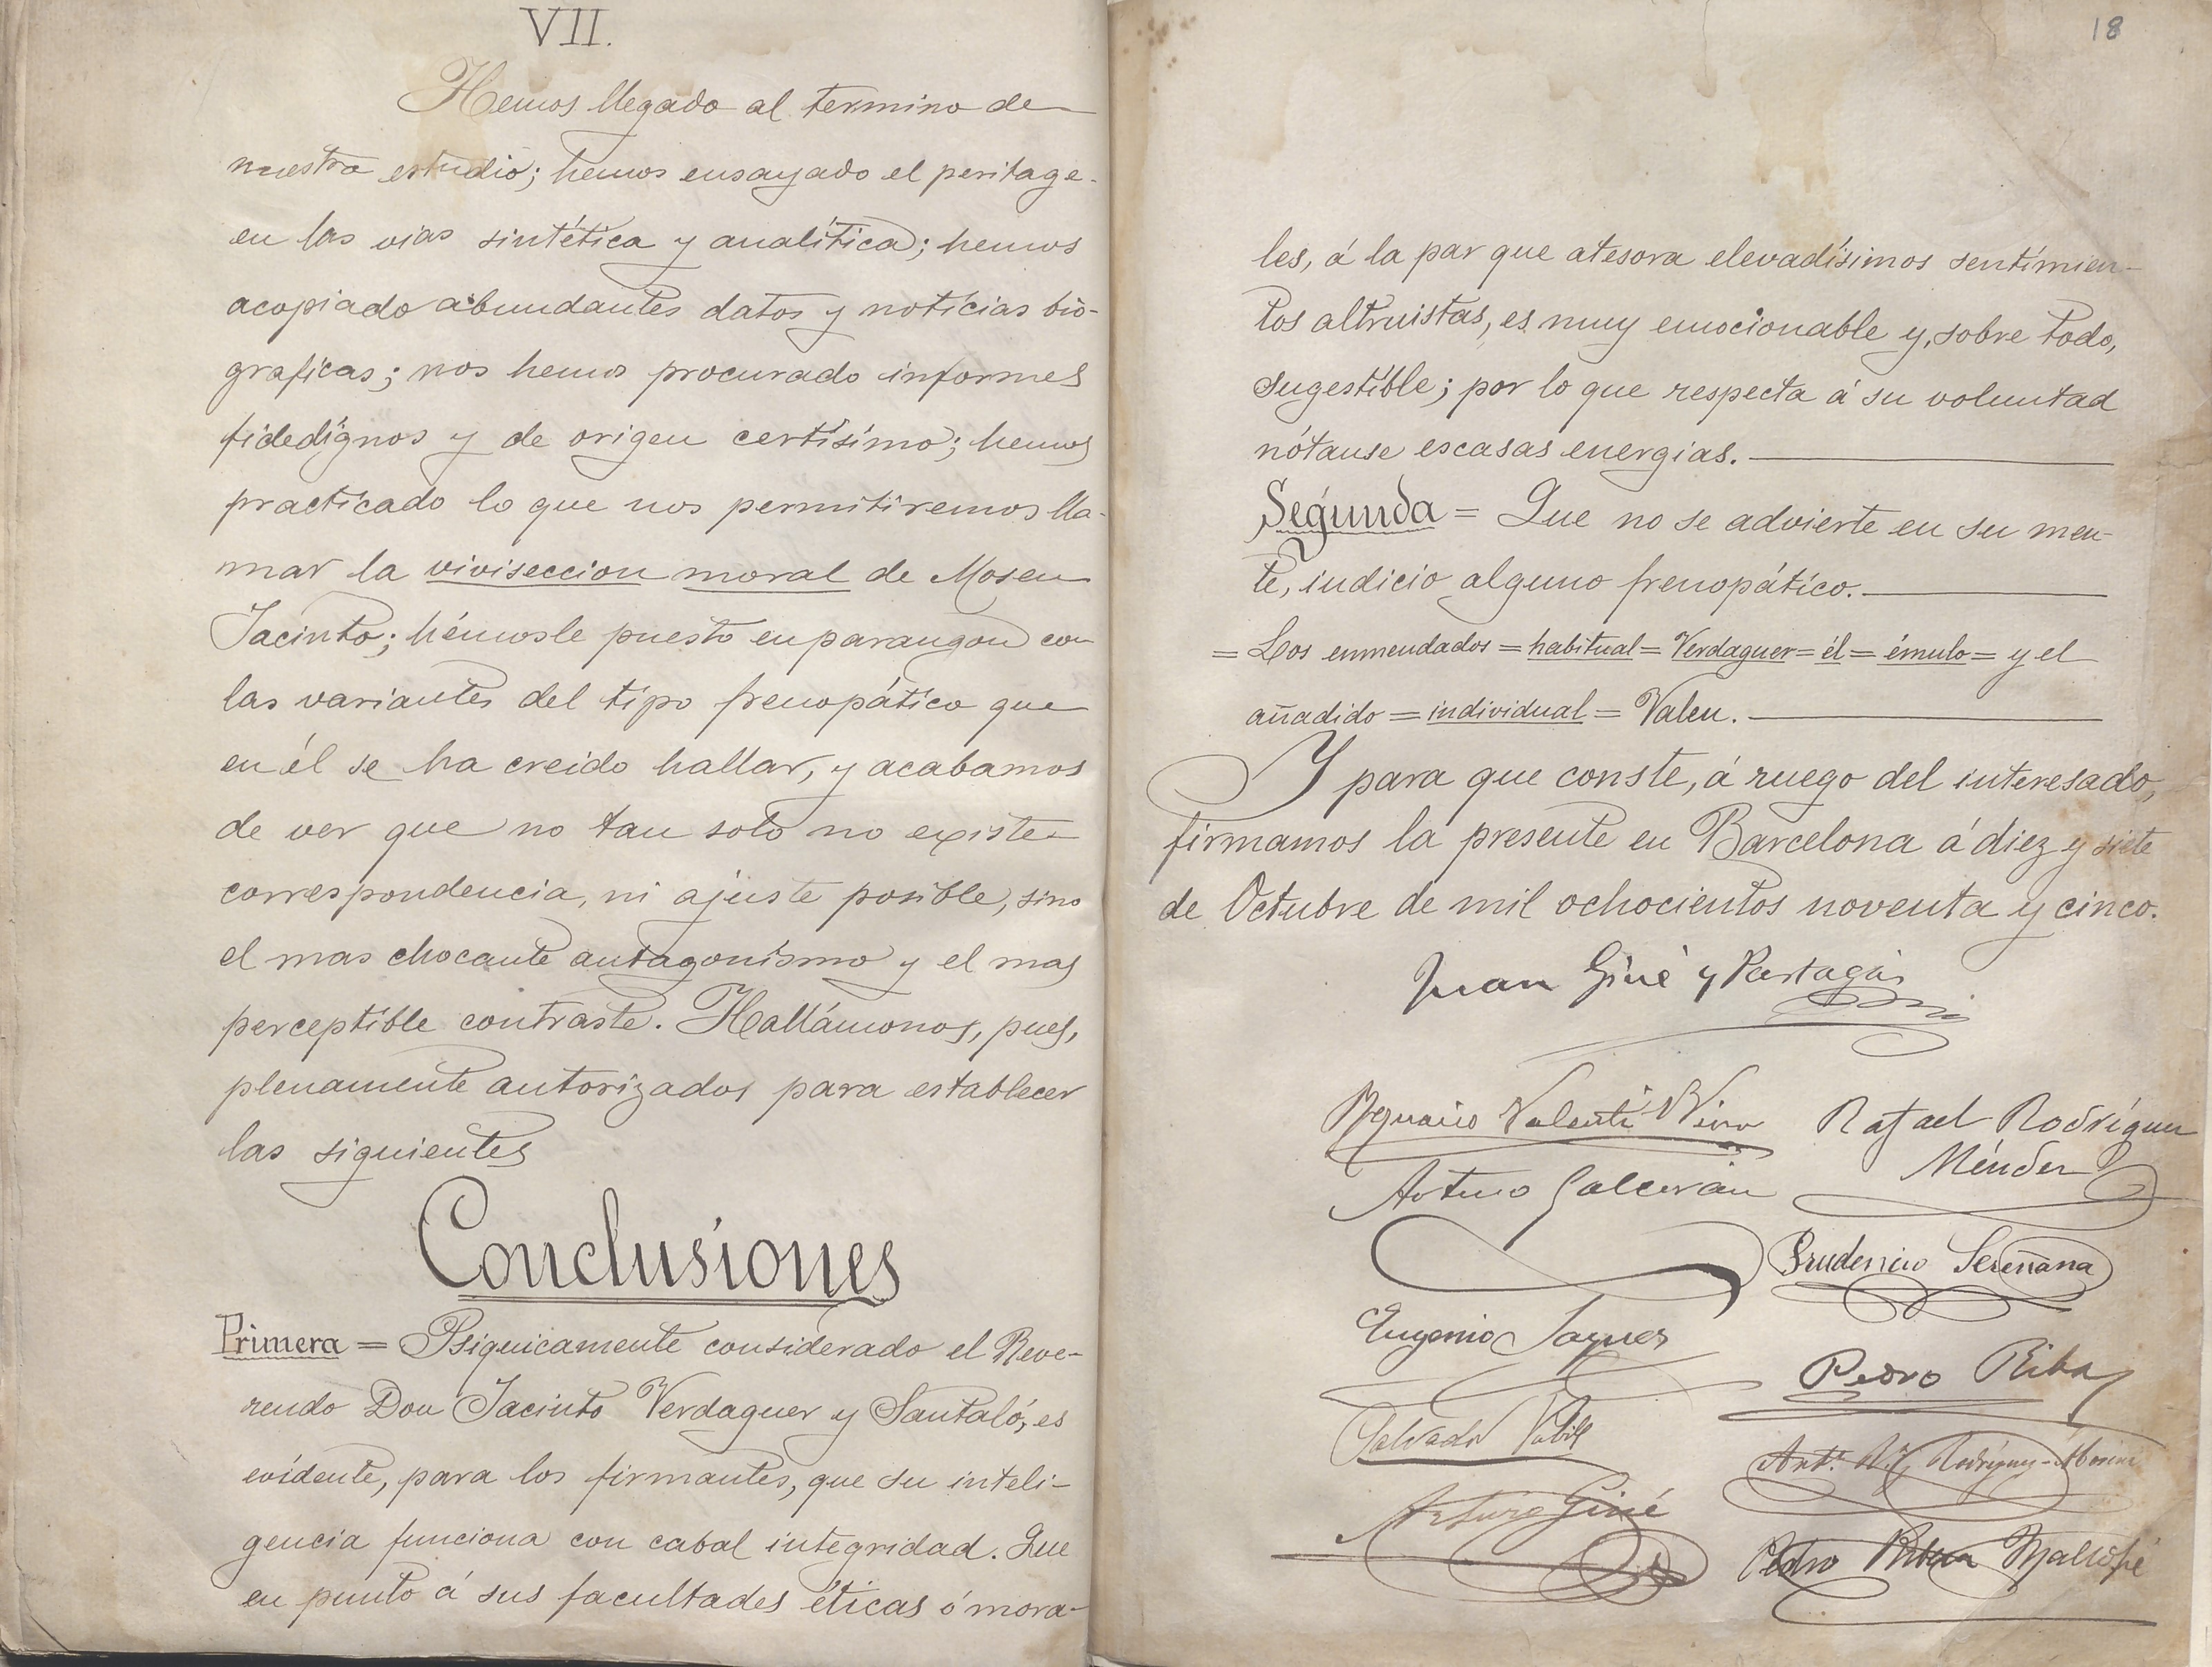 VII.
Hemos llegado al termino de
nuestro estudio; hemos ensayado el peritage
en las vias sintética y analítica; hemos
acopiado abundantes datos y noticias bio-
graficas; nos hemos procurado informes
fidedignos y de origen certísimo; hemos
practicado lo que nos permitiremos lla-
mar la viviseccion moral de Mosen
Jacinto; hémosle puesto en parangon con
las variantes del tipo frenopático que
en él se ha creido hallar, y acabamos
de ver que no tan solo no existe
correspondencia, ni ajuste posible, sino
el mas chocante antagonismo y el mas
perceptible contraste. Hallámonos, pues,
plenamente autorizados para establecer
las siguientes
Conclusiones
Primera = Psiquicamente considerado el Reve-
rendo Don Jacinto Verdaguer y Santaló, es
evidente, para los firmantes, que su inteli-
gencia funciona con cabal integridad. Que
en punto á sus facultades éticas ó mora-
18
les, á la par que atesora elevadísimos sentimien-
tos altruistas, es muy emocionable y, sobre todo,
sugestible; por lo que respecta á su voluntad
nótanse escasas energias.
Segunda = Que no se advierte en su men-
te, indicio alguno frenopático.
= Los enmendados = habitual = Verdaguer = él = émulo = y el
añadido = individual = Valen.
Y para que conste, á ruego del interesado,
firmamos la presente en Barcelona á diez y siete
de Octubre de mil ochocientos noventa y cinco.
Juan Giné y Partagás
Ygnacio Valentí Vivo
Rafael Rodríguez
Méndez
Arturo Galcerán
Prudencio Sereñana
Eugenio Jaques
Pedro Ribas
Salvador
Ant. Rodríguez-Morini
Arturo Giné
Pedro